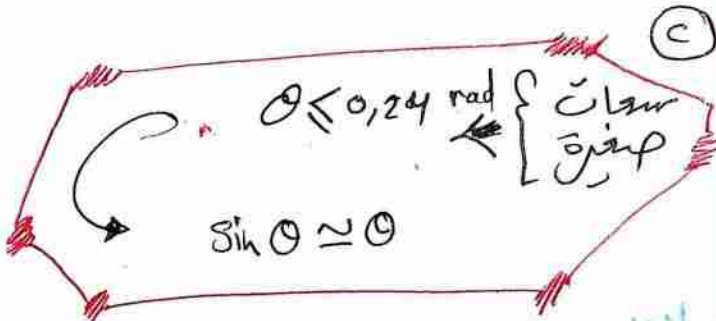 C
θ ≤ 0,24 rad { سعات
صغيرة
Sin θ ≃ θ